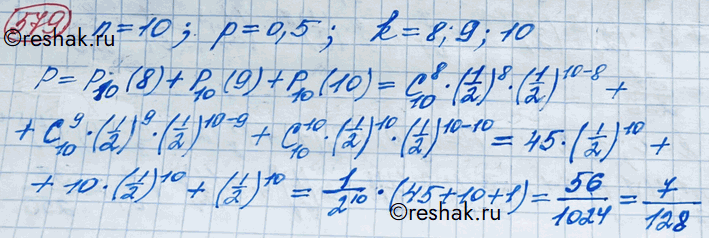 579 n = 10; p = 0,5; k = 8; 9; 10
©reshak.ru
P = P₁₀(8) + P₁₀(9) + P₁₀(10) = C₁₀⁸ · (1/2)⁸ · (1/2)¹⁰⁻⁸ +
+ C₁₀⁹ · (1/2)⁹ · (1/2)¹⁰⁻⁹ + C₁₀¹⁰ · (1/2)¹⁰ · (1/2)¹⁰⁻¹⁰ = 45 · (1/2)¹⁰ +
+ 10 · (1/2)¹⁰ + (1/2)¹⁰ = 1/2¹⁰ · (45 + 10 + 1) = 56/1024 = 7/128
©reshak.ru